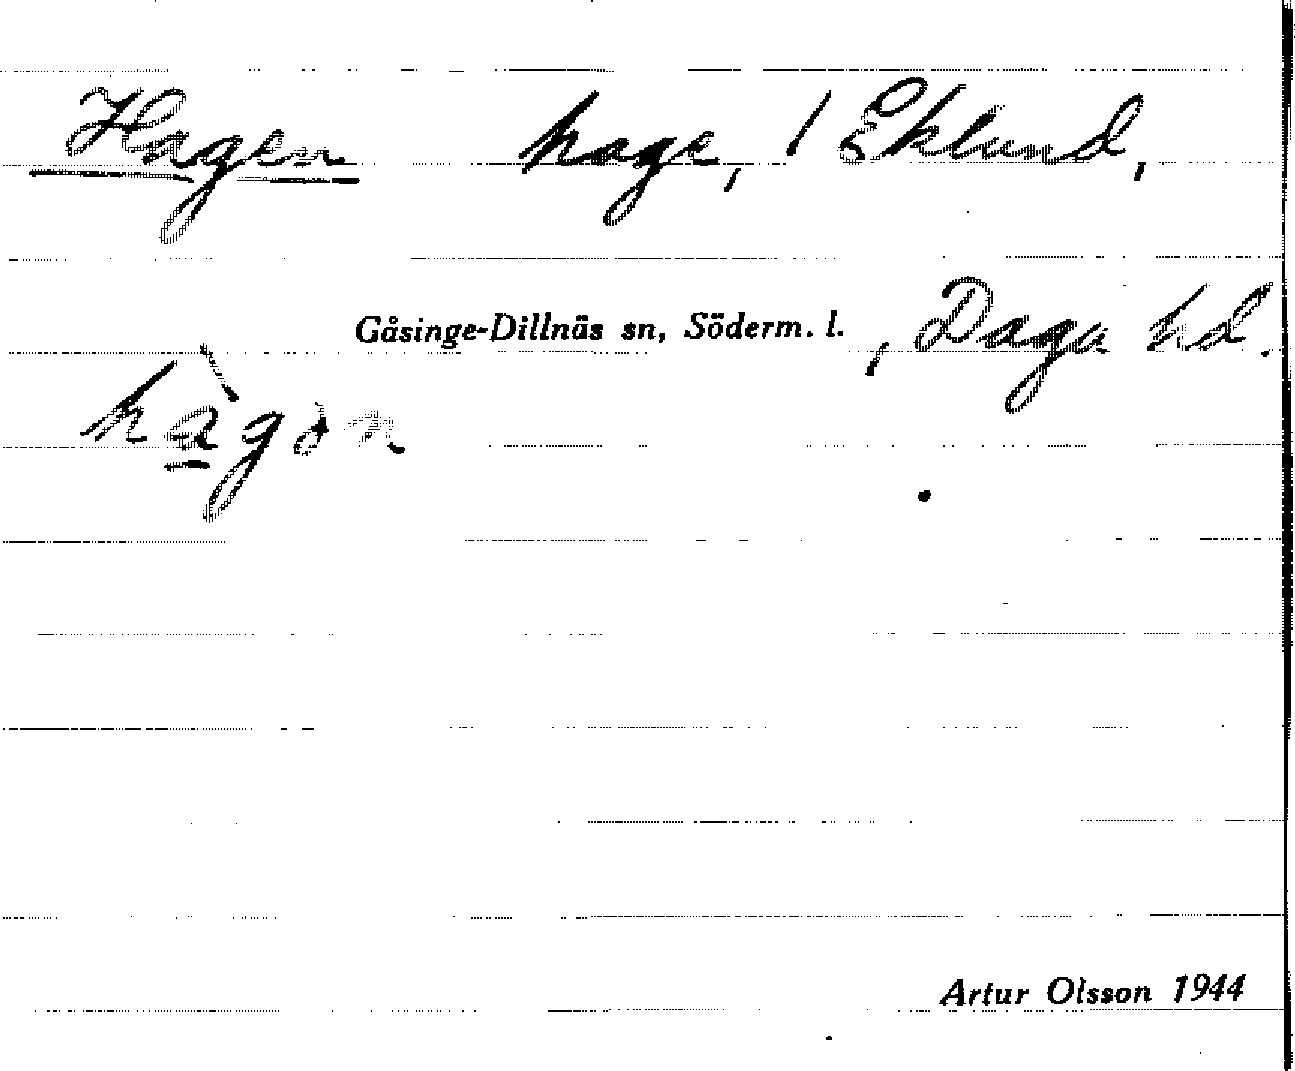 Hagen hage, / Eklund,
Gåsinge-Dillnäs sn, Söderm. l. , Daga hd.
hàgan
Artur Olsson 1944